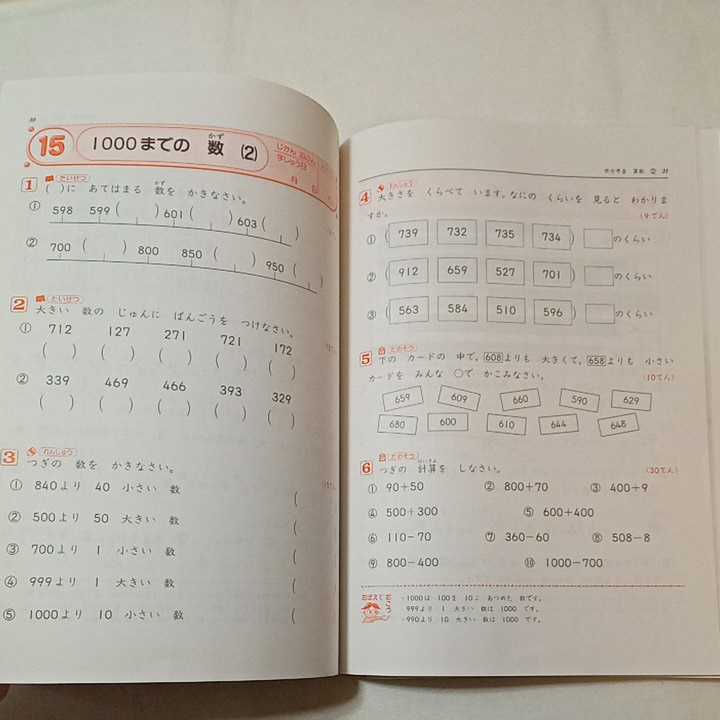 15 1000までの 数 (2)
かず
じかん
月
1 たいせつ
( )に あてはまる 数を かきなさい。
かず
① 598 599 ( ) 601 ( ) 603 ( )
② 700 ( ) 800 850 ( ) 950 ( )
2 たいせつ
大きい 数の じゅんに ばんごうを つけなさい。
① 712 127 271 721 172
( ) ( ) ( ) ( ) ( )
② 339 469 466 393 329
( ) ( ) ( ) ( ) ( )
3 れんしゅう
つぎの 数を かきなさい。
① 840より 40 小さい 数 (
② 500より 50 大きい 数 (
③ 700より 1 小さい 数 (
④ 999より 1 大きい 数 (
⑤ 1000より 10 小さい 数 (
算数 ② 31
4 れんしゅう
大きさを くらべて います。なにの くらいを 見ると わかりま
すか。 (9てん)
① ( 739 732 735 734 ) のくらい
② ( 912 659 527 701 ) のくらい
③ ( 563 584 510 596 ) のくらい
5
下の カードの 中で、608よりも 大きくて、658よりも 小さい
カードを みんな ○で かこみなさい。 (10てん)
659 609 660 590 629
680 600 610 644 648
6
つぎの 計算を しなさい。 (30てん)
けいさん
① 90+50 ② 800+70 ③ 400+9
④ 500+300 ⑤ 600+400
⑥ 110-70 ⑦ 360-60 ⑧ 508-8
⑨ 800-400 ⑩ 1000-700
おぼえておこう
・1000は 100を 10こ あつめた 数です。
・999より 1 大きい 数は 1000 です。
・990より 10 大きい 数は 1000 です。